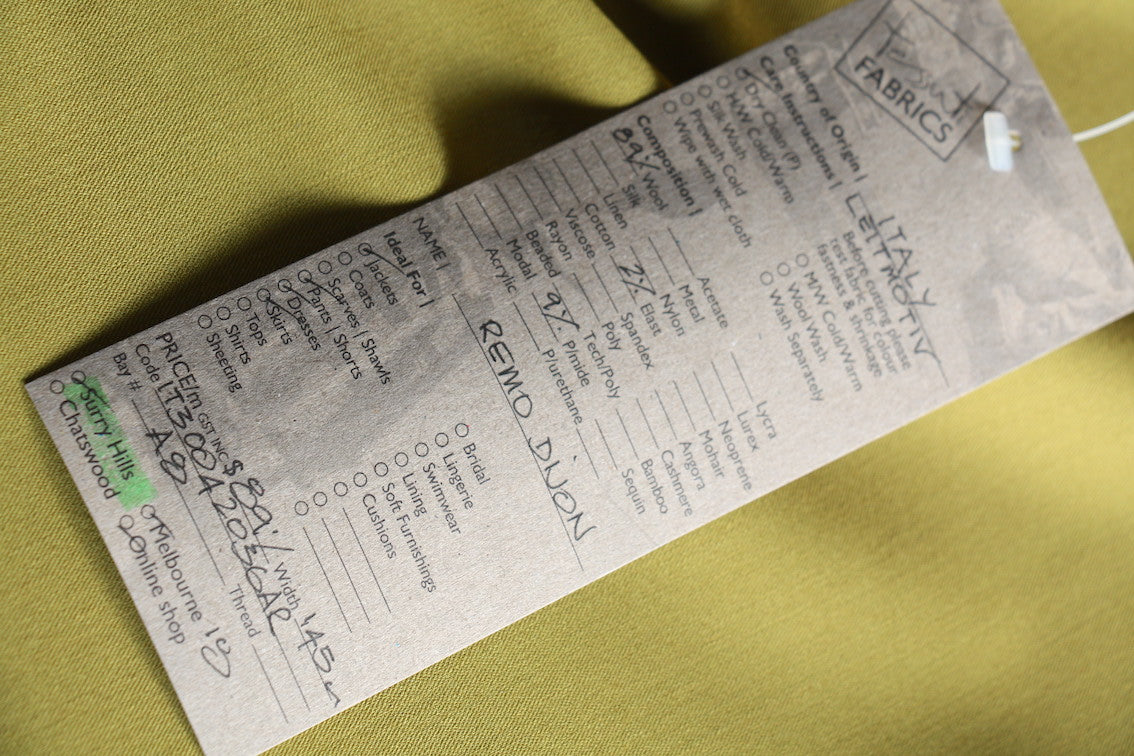 Tessuti
FABRICS
Country of Origin | ITALY
Care Instructions | LEITMOTIV
Dry Clean (P)
H/W Cold/Warm
Silk Wash
Prewash Cold
Wipe with wet cloth
Before cutting please
test fabric for colour
fastness & shrinkage
M/W Cold/Warm
Wool Wash
Wash Separately
Composition |
89% Wool
Silk
Linen
Cotton
Viscose
Rayon
Beaded
Modal
Acrylic
Acetate
Metal
Nylon
2% Elast
Spandex
Poly
Tech/Poly
9% P/mide
P/urethane
Lycra
Lurex
Neoprene
Mohair
Angora
Cashmere
Bamboo
Sequin
NAME | REMO DIJON
Ideal For |
Jackets
Coats
Scarves | Shawls
Pants | Shorts
Dresses
Skirts
Tops
Shirts
Sheeting
Bridal
Lingerie
Swimwear
Lining
Soft Furnishings
Cushions
PRICE/m GST INC $89. / Width 145m
Code LT3004
Bay # Thread
Surry Hills
Chatswood
Melbourne
Online shop